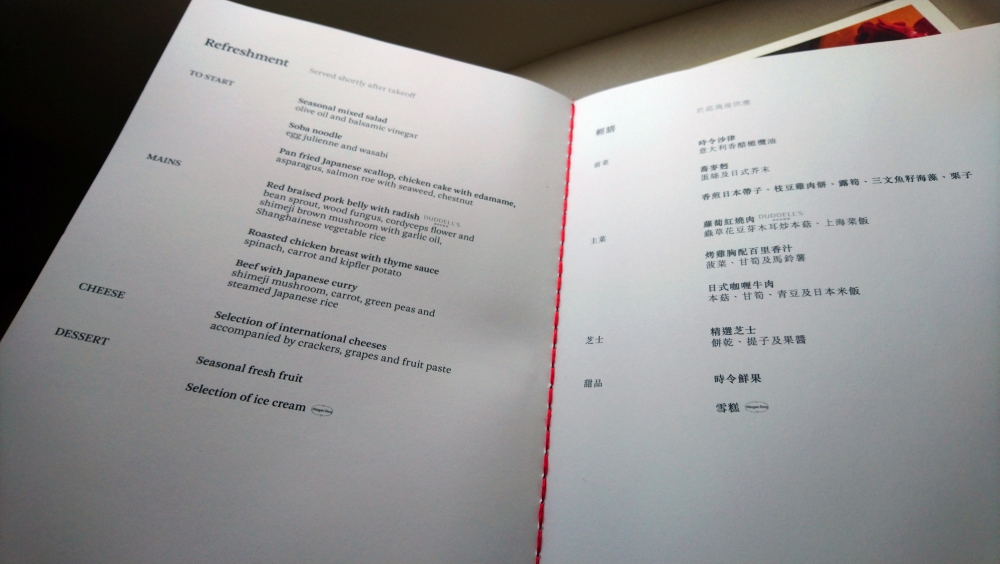 Refreshment
Served shortly after takeoff
TO START
Seasonal mixed salad
olive oil and balsamic vinegar
Soba noodle
egg julienne and wasabi
Pan fried Japanese scallop, chicken cake with edamame,
asparagus, salmon roe with seaweed, chestnut
MAINS
Red braised pork belly with radish DUDDELL'S
bean sprout, wood fungus, cordyceps flower and
shimeji brown mushroom with garlic oil,
Shanghainese vegetable rice
Roasted chicken breast with thyme sauce
spinach, carrot and kipfler potato
Beef with Japanese curry
shimeji mushroom, carrot, green peas and
steamed Japanese rice
CHEESE
Selection of international cheeses
accompanied by crackers, grapes and fruit paste
DESSERT
Seasonal fresh fruit
Selection of ice cream Häagen-Dazs
輕膳
前菜
時令沙律
意大利香醋橄欖油
蕎麥麵
蛋絲及日式芥末
香煎日本帶子、枝豆雞肉餅、露筍、三文魚籽海藻、栗子
主菜
蘿蔔紅燒肉 DUDDELL'S
蟲草花豆芽木耳炒本菇、上海菜飯
烤雞胸配百里香汁
菠菜、甘筍及馬鈴薯
日式咖喱牛肉
本菇、甘筍、青豆及日本米飯
芝士
精選芝士
餅乾、提子及果醬
甜品
時令鮮果
雪糕 Häagen-Dazs